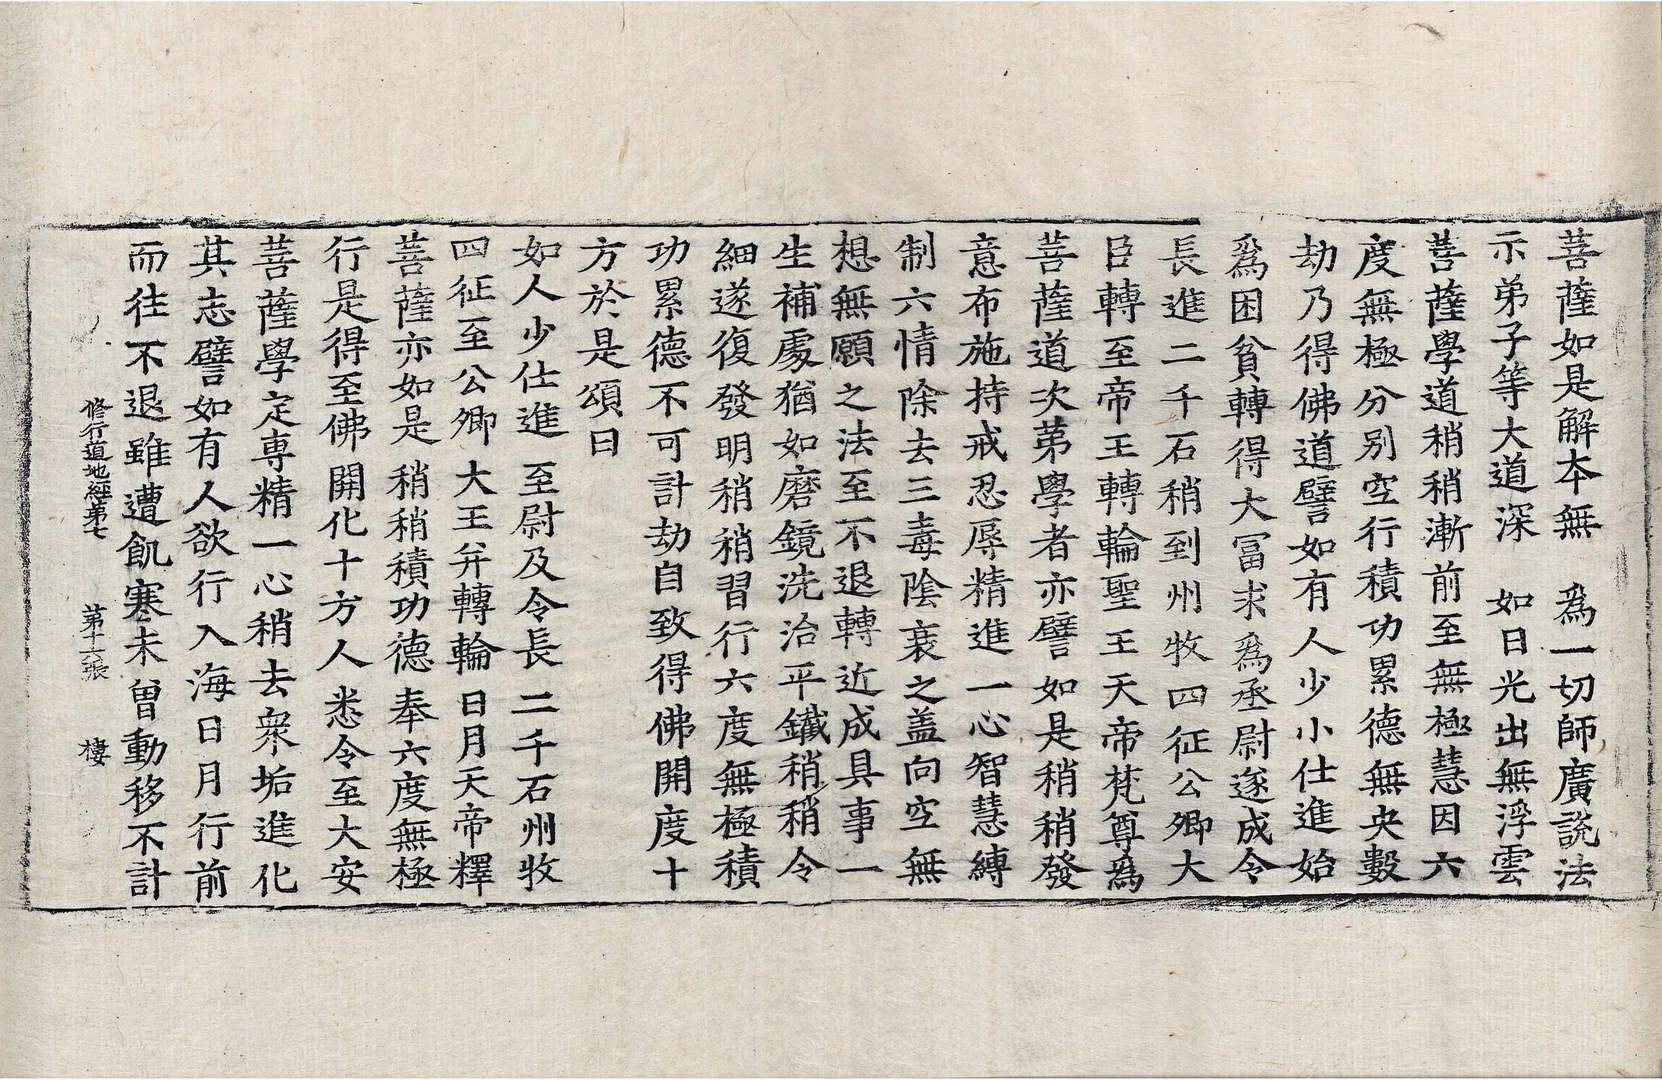 菩薩如是解本無　為一切師廣說法
示弟子等大道深　如日光出無浮雲
菩薩學道稍稍漸前至無極慧因六
度無極分別空行積功累德無央數
劫乃得佛道譬如有人少小仕進始
爲困貧轉得大冨求爲丞尉遂成令
長進二千石稍到州牧四征公卿大
臣轉至帝王轉輪聖王天帝梵尊爲
菩薩道次第學者亦譬如是稍稍發
意布施持戒忍辱精進一心智慧縛
制六情除去三毒陰衰之盖向空無
想無願之法至不退轉近成具事一
生補處猶如磨鏡洗治平鐵稍稍令
細遂復發明稍稍習行六度無極積
功累德不可計劫自致得佛開度十
方於是頌曰
如人少仕進　至尉及令長　二千石州牧
四征至公卿　大王并轉輪　日月天帝釋
菩薩亦如是　稍稍積功德　奉六度無極
行是得至佛　開化十方人　悉令至大安
菩薩學定専精一心稍去衆垢進化
其志譬如有人欲行入海日月行前
而往不退雖遭飢寒未曾動移不計
修行道地經第七　第十六張　棲